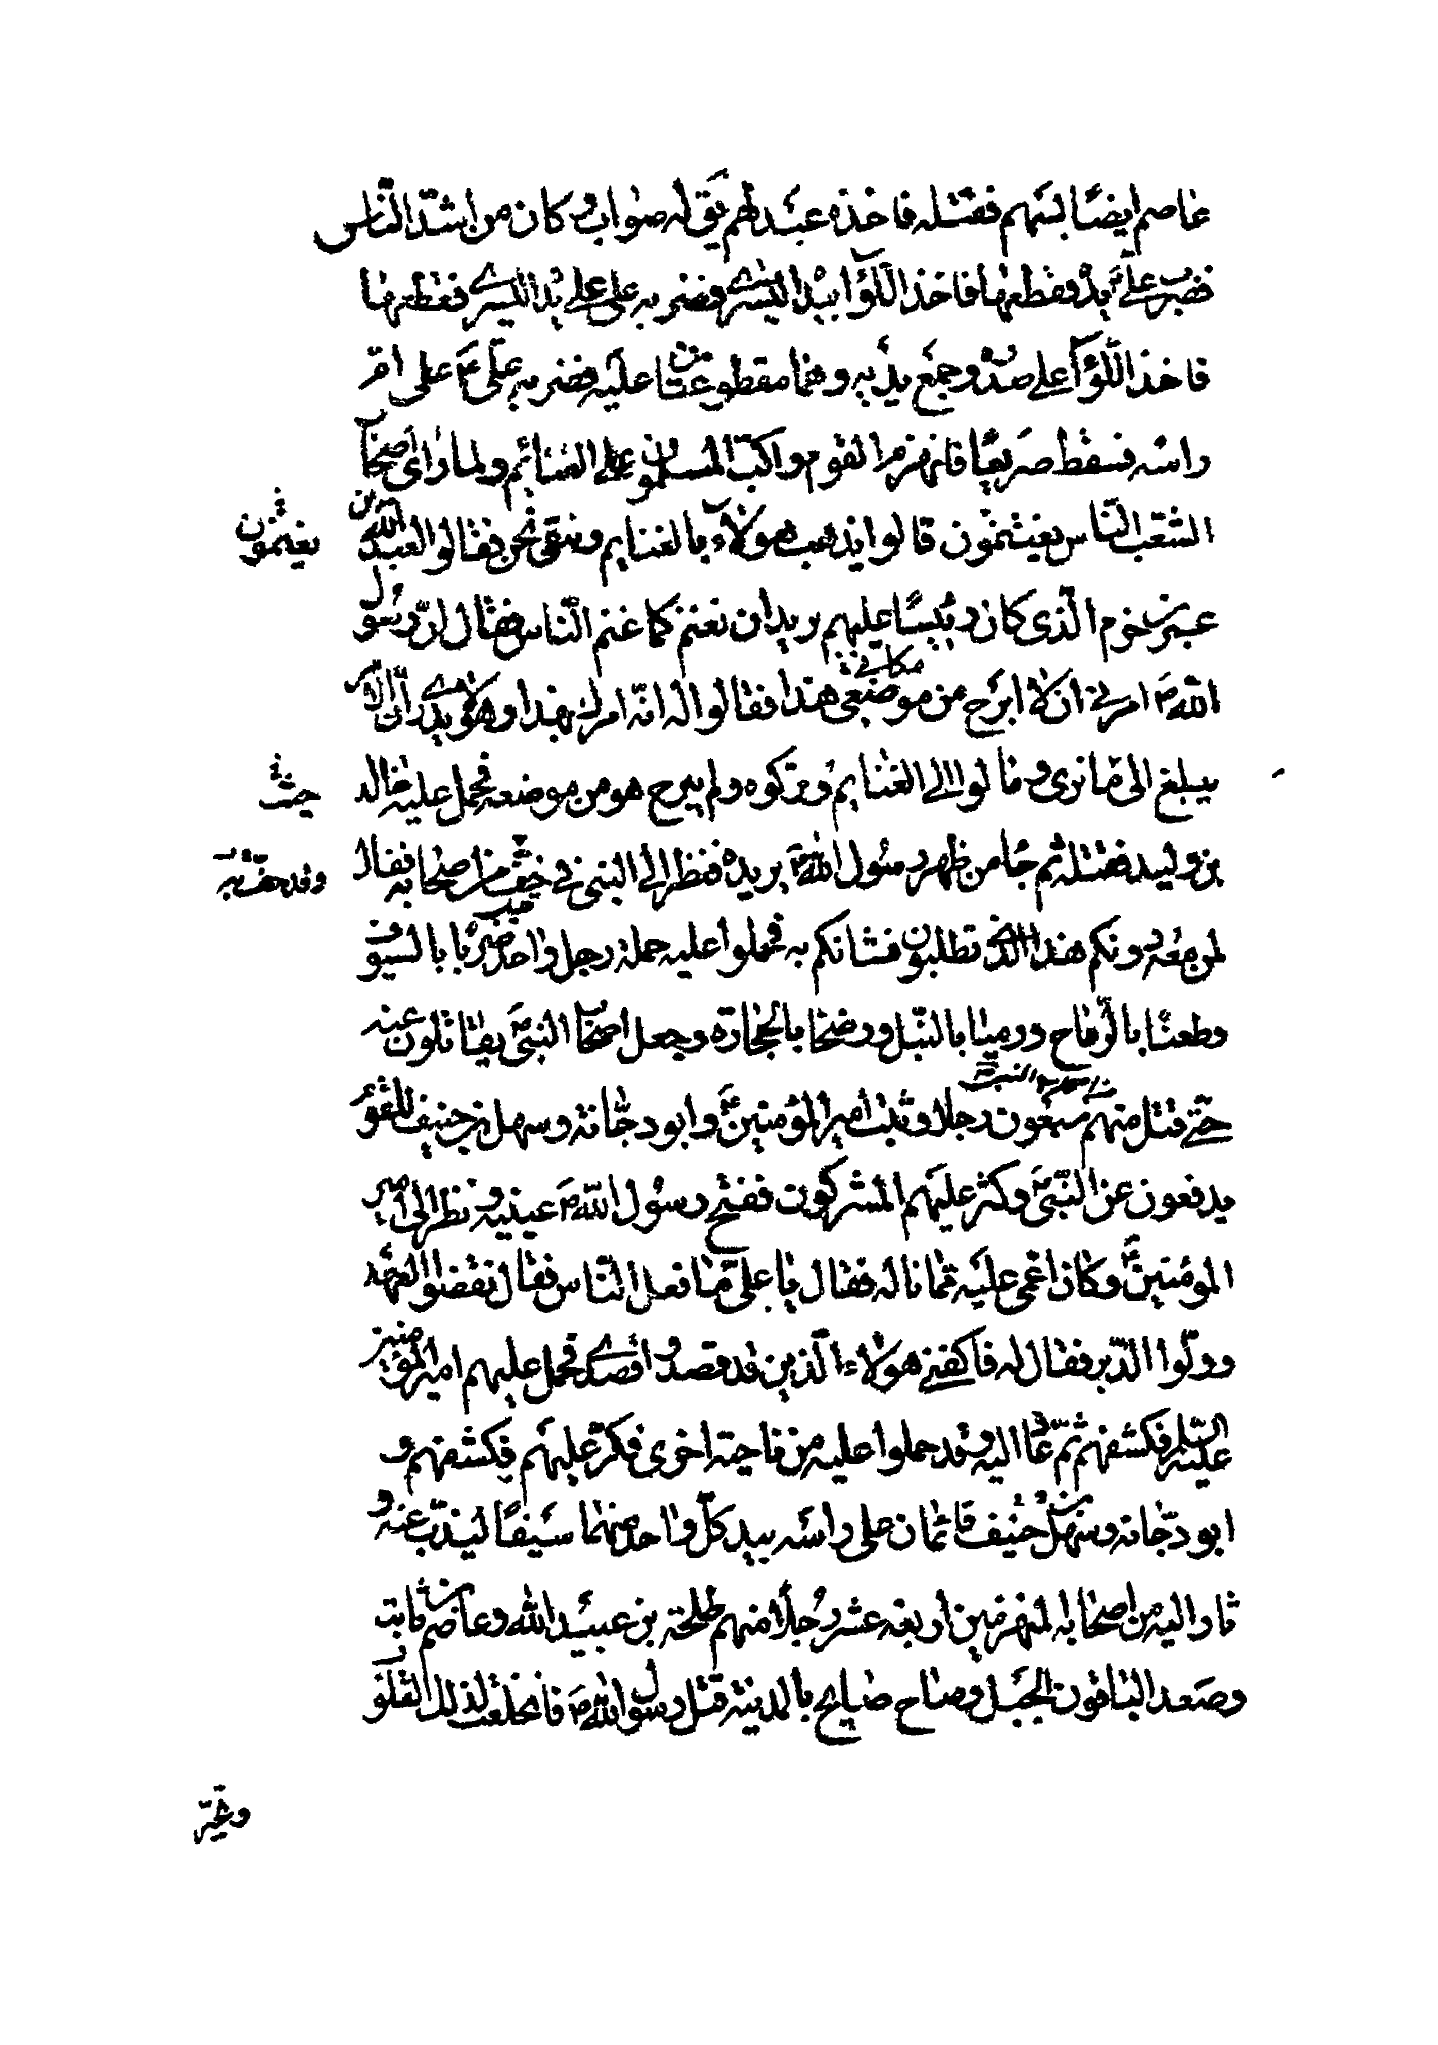 عاصم ايضا بسهم فقتله فاخذه عبد لهم يق له صواب وكان من اشد الناس
فضرب علي ع يده فقطعها فاخذ اللوآ بيده اليسرى وضربه علي على يده اليسرى فقطعها
فاخذ اللوآ على صدره وجمع يديه وهما مقطوعتا عليه فضربه علي ع على ام
راسه فسقط صريعا فانهزم القوم واكب المسلمون على الغنائم ولما راى اصحاب
الشعب الناس يغتنمون قالوا يذهب هولاء بالغنايم ونبقى نحن فقالوا لعبد الله بن
يغتنمون
عمر بن حزم الذي كان رئيسا عليهم نريد ان نغنم كما غنم الناس فقال ان رسول
مكاني
الله ص امرني ان لا ابرح من موضعي هذا فقالوا له انه امرك بهذا وهو لا يدري ان الامر
يبلغ الى ما نرى ومالوا الى الغنايم وتركوه ولم يبرح هو من موضعه فحمل عليه خالد
بن وليد فقتله ثم جا من ظهر رسول الله ص يريده فنظر الى النبي في خف من اصحابه فقال
وقد حف به
لمن معه دونكم هذا الذي تطلبون فشانكم به فحملوا عليه حملة رجل واحد ضربا بالسيوف
وطعنا بالرماح ورميا بالنبل ورضخا بالحجارة وجعل اصحاب النبي ص يقاتلون عنه
حتى قتل منهم سبعون رجلا وثبت امير المؤمنين ع وابو دجانة وسهل بن حنيف للقوم
يدفعون عن النبي ص وكثر عليهم المشركون ففتح رسول الله ص عينيه ونظر الى امير
المؤمنين ع وكان اغمي عليه مما ناله فقال يا علي ما فعل الناس فقال نقضوا العهد
وولوا الدبر فقال له فاكفني هولاء الذين قد قصدوا قصدي فحمل عليهم امير المؤمنين
عليه السلم فكشفهم ثم عاد اليه وقد حملوا عليه من ناحية اخرى فكر عليهم فكشفهم و
ابو دجانة وسهل بن حنيف قائمان على راسه بيد كل واحد منهما سيفا ليذب عنه و
ثاب اليه من اصحابه المنهزمين اربعة عشر رجلا منهم طلحة بن عبيد الله وعاصم بن ثابت
وصعد الباقون الجبل وصاح صايح بالمدينة قتل رسول الله ص فانخلعت لذلك القلوب
وتحير